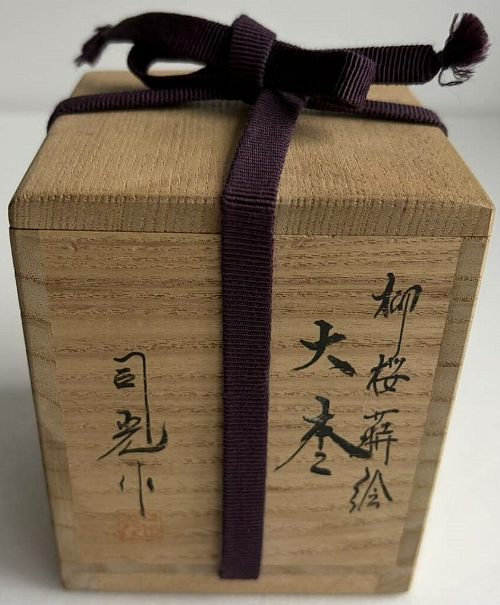 柳桜蒔絵
大棗
司光作